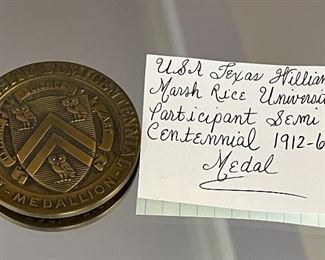 SEMICENTENNIAL
MEDALLION
USA Texas William
Marsh Rice Universit
Participant Semi
Centennial 1912-6
Medal